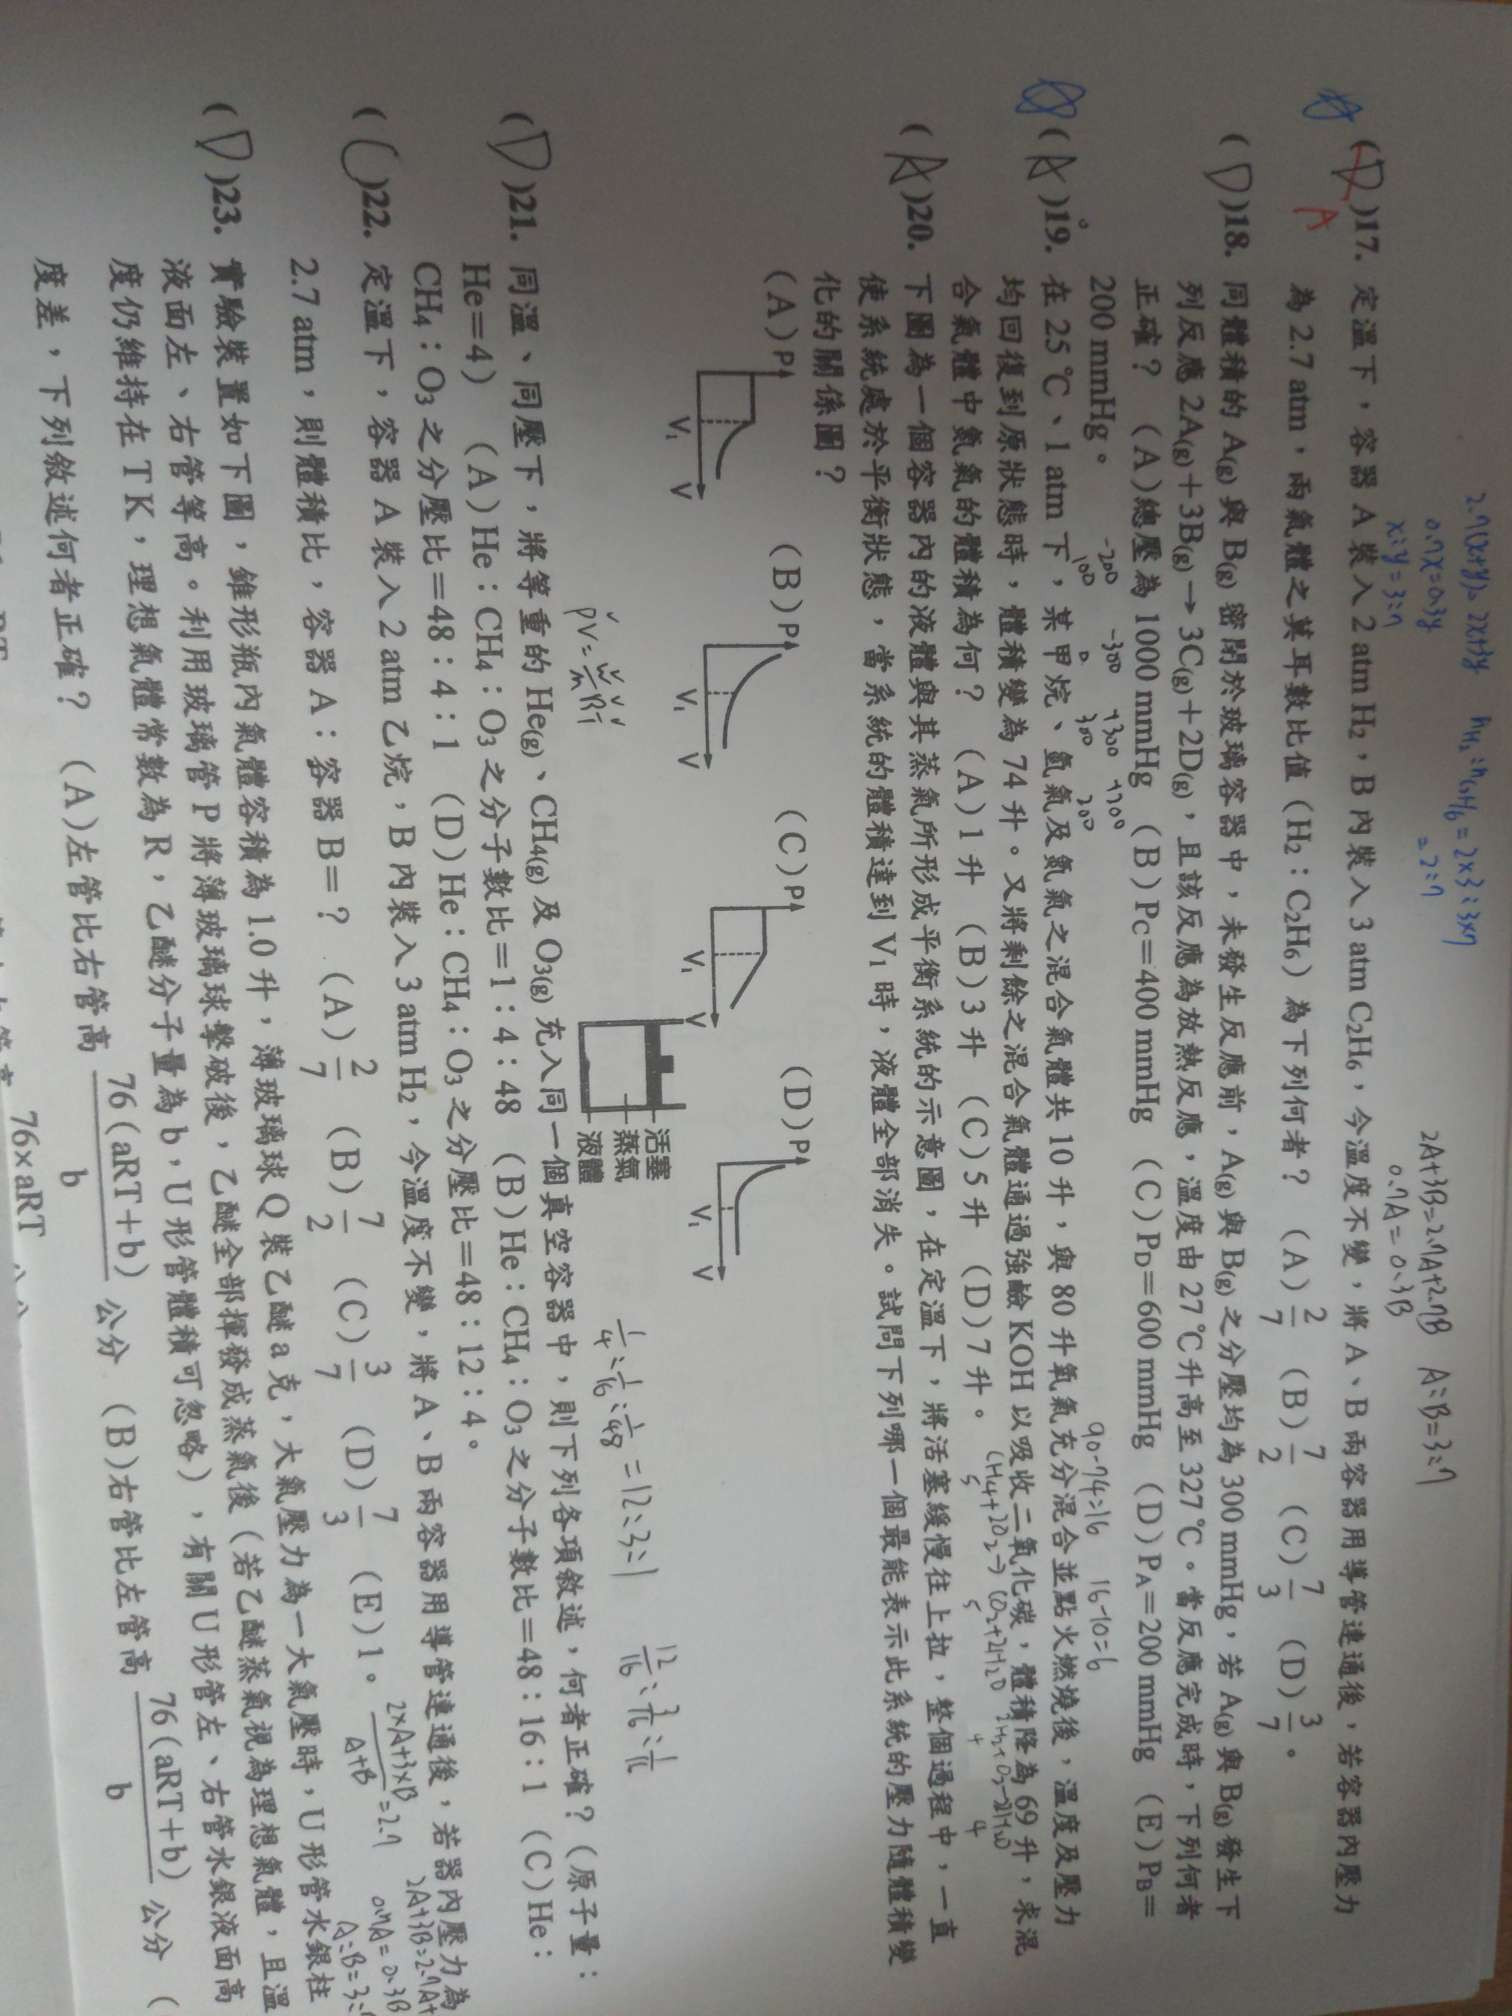 2.7(x+y)=2x+3y
0.7x=0.3y
x:y=3:7
nH₂:nC₂H₆=2×3:3×7
=2:7
2A+3B=2.7A+2.7B
0.7A=0.3B
A:B=3:7
(D)17. 定溫下，容器 A 裝入 2 atm H₂，B 內裝入 3 atm C₂H₆，今溫度不變，將 A、B 兩容器用導管連通後，若容器內壓力
A
為 2.7 atm，兩氣體之莫耳數比值（H₂：C₂H₆）為下列何者？ (A) 2/7 (B) 7/2 (C) 7/3 (D) 3/7。
(D)18. 同體積的 A(g) 與 B(g) 密閉於玻璃容器中，未發生反應前，A(g) 與 B(g) 之分壓均為 300 mmHg，若 A(g) 與 B(g) 發生下
列反應 2A(g)＋3B(g)→3C(g)＋2D(g)，且該反應為放熱反應，溫度由 27 ℃升高至 327 ℃。當反應完成時，下列何者
正確？ (A)總壓為 1000 mmHg (B) PC＝400 mmHg (C) PD＝600 mmHg (D) PA＝200 mmHg (E) PB＝
200 mmHg。
-200 -300 +300 +200
100 0 300 200
90-74=16 16-10=6
(A)19. 在 25 ℃、1 atm 下，某甲烷、氫氣及氮氣之混合氣體共 10 升，與 80 升氧氣充分混合並點火燃燒後，溫度及壓力
均回復到原狀態時，體積變為 74 升。又將剩餘之混合氣體通過強鹼 KOH 以吸收二氧化碳，體積降為 69 升，求混
合氣體中氮氣的體積為何？ (A) 1 升 (B) 3 升 (C) 5 升 (D) 7 升。
CH₄+2O₂→CO₂+2H₂O
5 5 4 4
(A)20. 下圖為一個容器內的液體與其蒸氣所形成平衡系統的示意圖，在定溫下，將活塞緩慢往上拉，整個過程中，一直
使系統處於平衡狀態，當系統的體積達到 V₁ 時，液體全部消失。試問下列哪一個最能表示此系統的壓力隨體積變
化的關係圖？
(A) P (B) P (C) P (D) P
V₁ V V₁ V V₁ V V₁ V
活塞
蒸氣
液體
PV=W/M RT
1/4:1/16:1/48=12:3:1
12/16:3/16:1/16
(D)21. 同溫、同壓下，將等重的 He(g)、CH₄(g) 及 O₃(g) 充入同一個真空容器中，則下列各項敘述，何者正確？（原子量：
He＝4） (A) He：CH₄：O₃ 之分子數比＝1：4：48 (B) He：CH₄：O₃ 之分子數比＝48：16：1 (C) He：
CH₄：O₃ 之分壓比＝48：4：1 (D) He：CH₄：O₃ 之分壓比＝48：12：4。
(C)22. 定溫下，容器 A 裝入 2 atm 乙烷，B 內裝入 3 atm H₂，今溫度不變，將 A、B 兩容器用導管連通後，若器內壓力為
2.7 atm，則體積比，容器 A：容器 B＝？ (A) 2/7 (B) 7/2 (C) 3/7 (D) 7/3 (E) 1。
2×A+3×B/A+B=2.7
2A+3B=2.7A+
0.7A=0.3B
A:B=3:
(D)23. 實驗裝置如下圖，錐形瓶內氣體容積為 1.0 升，薄玻璃球 Q 裝乙醚 a 克，大氣壓力為一大氣壓時，U 形管水銀柱
液面左、右管等高。利用玻璃管 P 將薄玻璃球擊破後，乙醚全部揮發成蒸氣後（若乙醚蒸氣視為理想氣體，且溫
度仍維持在 T K，理想氣體常數為 R，乙醚分子量為 b，U 形管體積可忽略），有關 U 形管左、右管水銀液面高
度差，下列敘述何者正確？ (A)左管比右管高 76（aRT＋b）/b 公分 (B)右管比左管高 76（aRT＋b）/b 公分 (
76×aRT